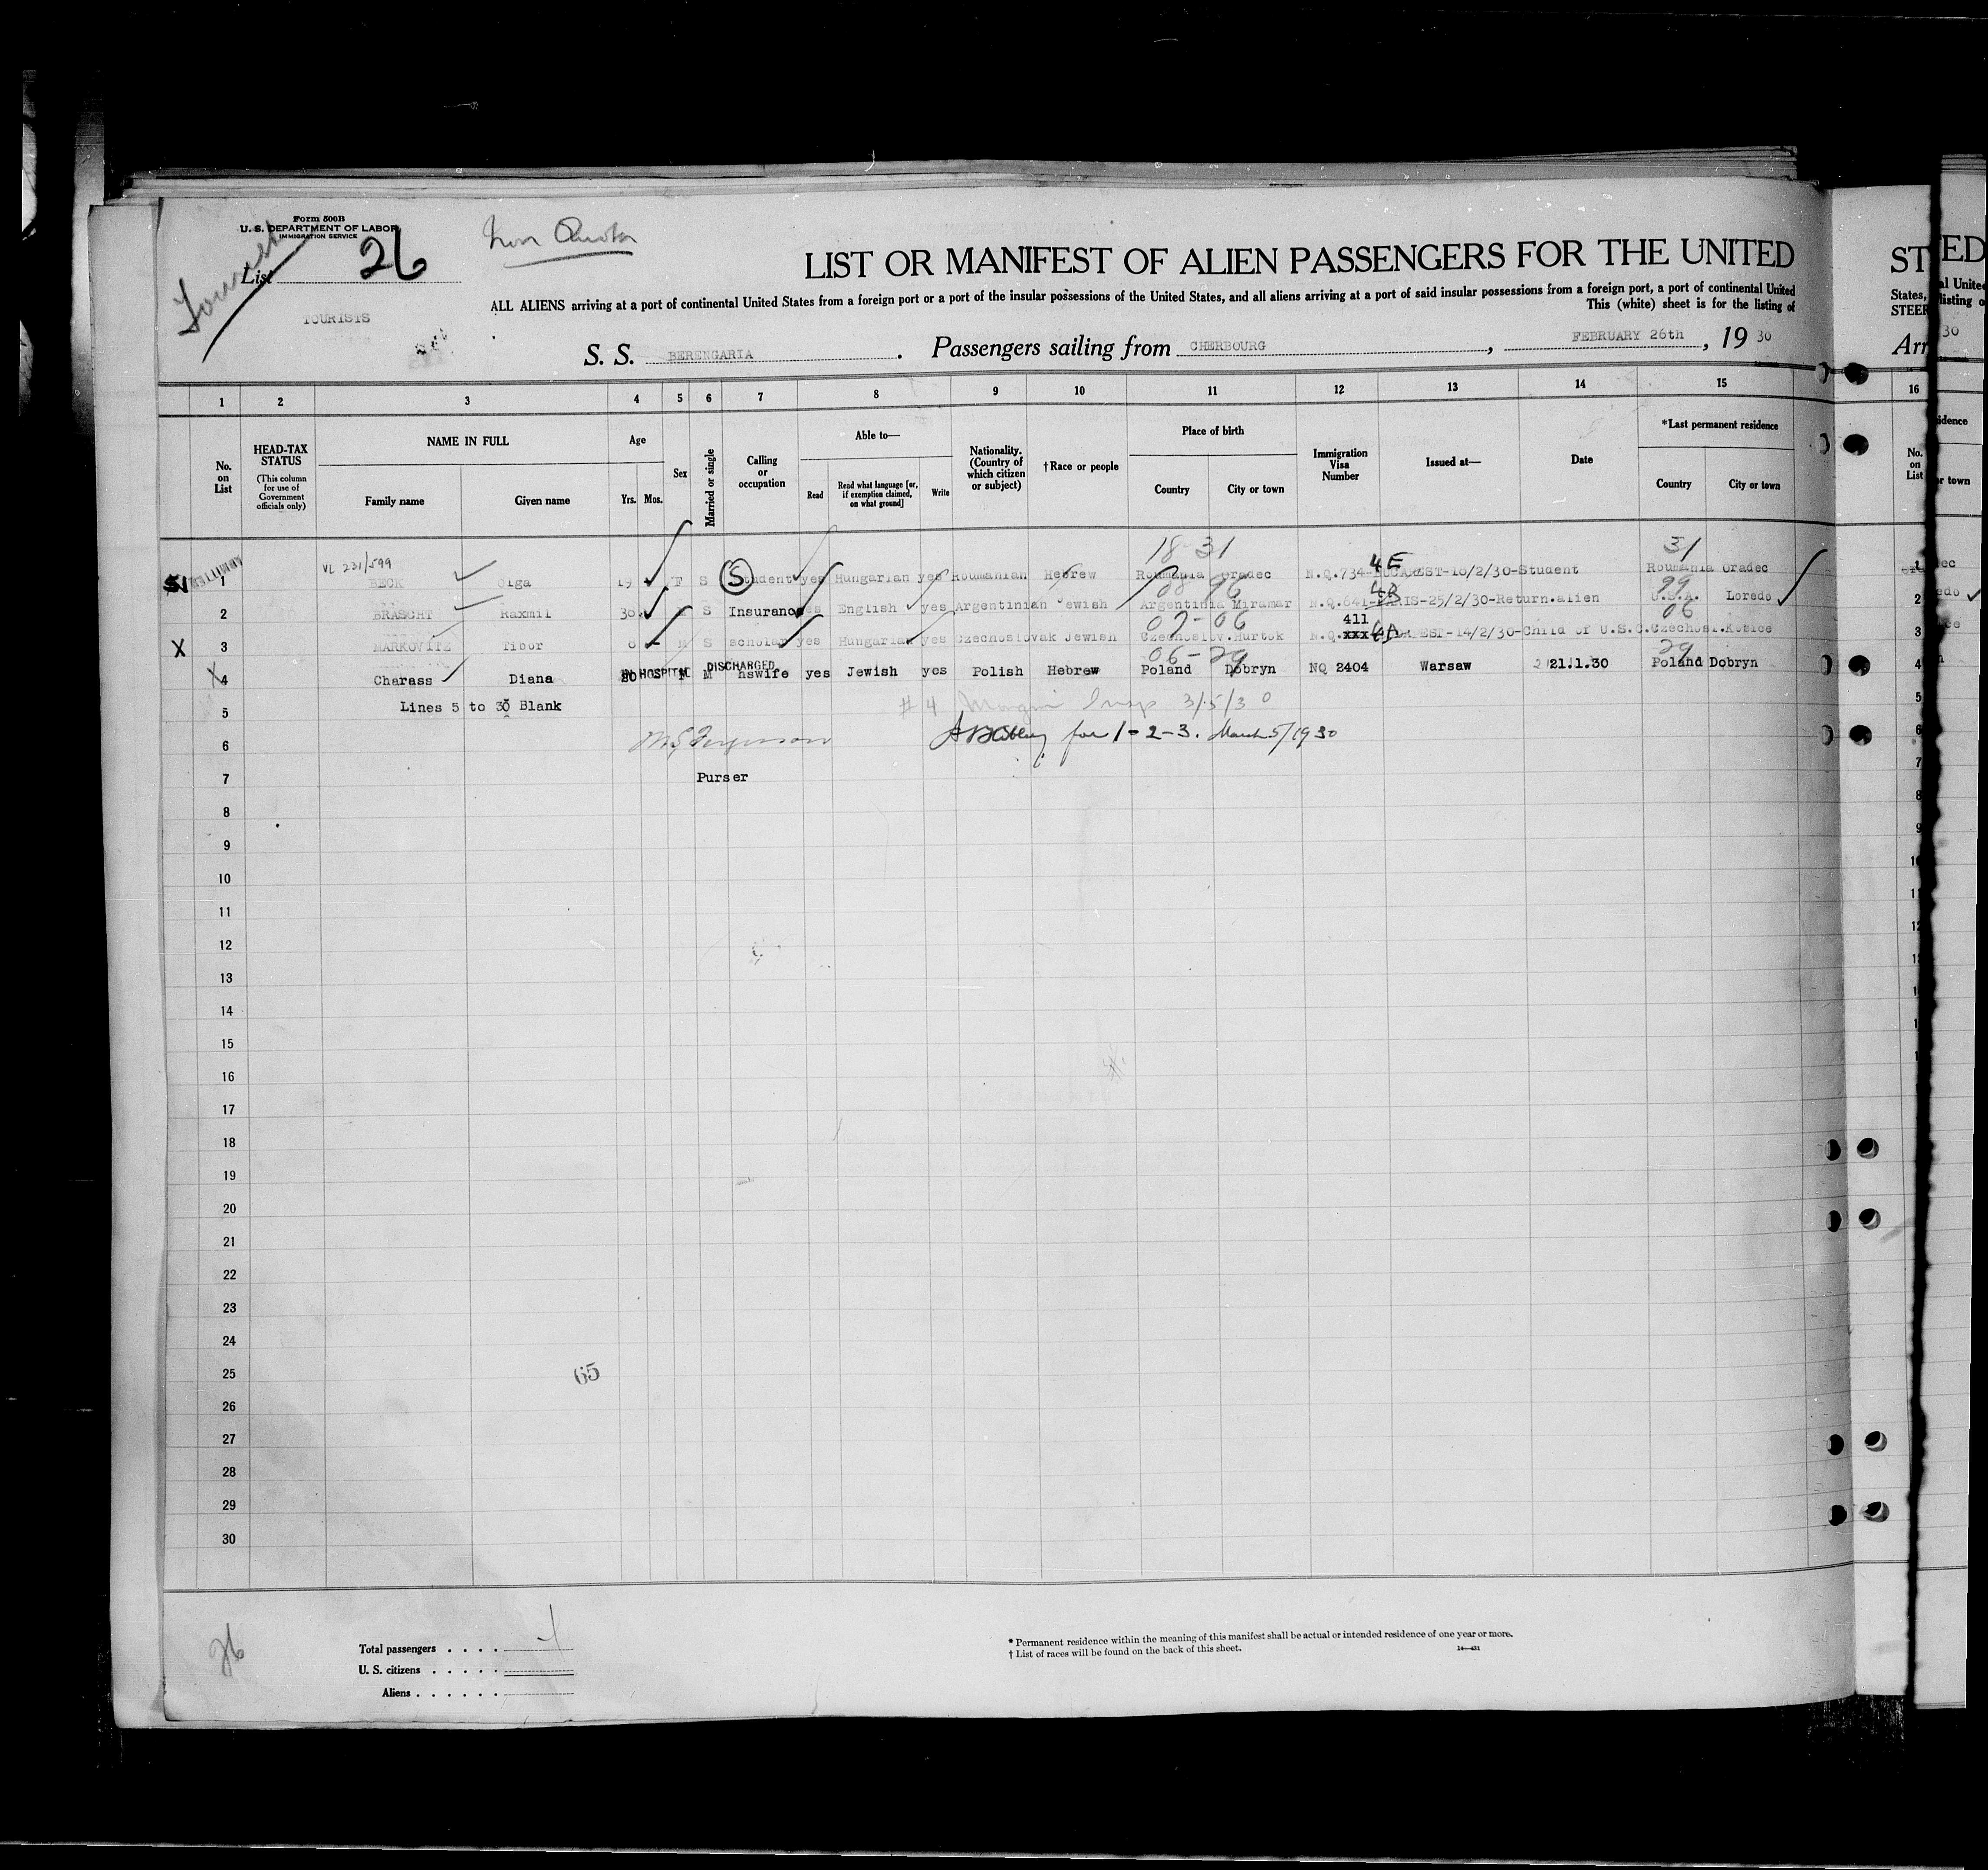 Form 500B
U. S. DEPARTMENT OF LABOR
IMMIGRATION SERVICE
Tourist
List 26
Non Quota
TOURISTS
LIST OR MANIFEST OF ALIEN PASSENGERS FOR THE UNITED
ALL ALIENS arriving at a port of continental United States from a foreign port or a port of the insular possessions of the United States, and all aliens arriving at a port of said insular possessions from a foreign port, a port of continental United
This (white) sheet is for the listing of
S. S. BERENGARIA. Passengers sailing from CHERBOURG, FEBRUARY 26th, 19 30
1 2 3 4 5 6 7 8 9 10 11 12 13 14 15
No. on List
HEAD-TAX STATUS
(This column for use of Government officials only)
NAME IN FULL
Family name Given name
Age
Yrs. Mos.
Sex
Married or single
Calling or occupation
Able to—
Read
Read what language [or, if exemption claimed, on what ground]
Write
Nationality. (Country of which citizen or subject)
† Race or people
Place of birth
Country City or town
Immigration Visa Number
Issued at—
Date
*Last permanent residence
Country City or town
VL 231/599 18 31 4E 31
SI ADMITTED 1 BECK Olga 19 F S Student yes Hungarian yes Roumanian Hebrew Roumania Oradec N.Q.734-BUCAREST-10/2/30-Student Roumania Oradec
96 4B 99
2 BRASCHT Raxmil 30 S Insurance yes English yes Argentinian Jewish Argentinia Miramar N.Q.641-PARIS-25/2/30-Return.alien U.S.A. Loredo
07-06 411 4A 06
X 3 MARKOVITZ Tibor 8 M S scholar yes Hungarian yes Czechoslovak Jewish Czechoslov.Hurtok N.Q.xxx -14/2/30-Child of U.S.C.Czechosl.Kosice
06-29 29
IN HOSPITAL DISCHARGED
X 4 Charass Diana 20 F M hswife yes Jewish yes Polish Hebrew Poland Dobryn NQ 2404 Warsaw 21.1.30 Poland Dobryn
5 Lines 5 to 30 Blank
#4 Insp 3/5/30
6 for 1-2-3. March 5/1930
7 Purser
8
9
10
11
12
13
14
15
16
17
18
19
20
21
22
23
24
25 65
26
27
28
29
30
26
Total passengers . . . . . 4
U. S. citizens . . . . .
Aliens . . . . . .
* Permanent residence within the meaning of this manifest shall be actual or intended residence of one year or more.
† List of races will be found on the back of this sheet.
14—431
ST
States,
STEER
Arr
16
No. on List
1
2
3
4
5
6
7
8
9
ED
30